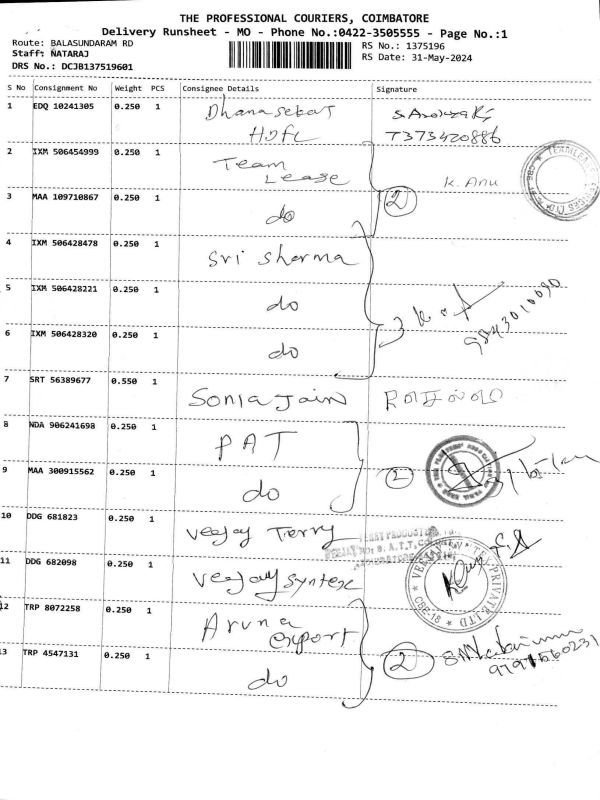 THE PROFESSIONAL COURIERS, COIMBATORE
Delivery Runsheet - MO - Phone No.:0422-3505555 - Page No.:1
Route: BALASUNDARAM RD
Staff: NATARAJ
DRS No.: DCJB137519601
RS No.: 1375196
RS Date: 31-May-2024
S No Consignment No Weight PCS Consignee Details Signature
1 EDQ 10241305 0.250 1 Dhanasekar
HDFC 7373420886
2 IXM 506454999 0.250 1 Team
Lease K. Anu
3 MAA 109710867 0.250 1 do 2
4 IXM 506428478 0.250 1 Sri Sharma
5 IXM 506428221 0.250 1 do 3
9843010090
6 IXM 506428320 0.250 1 do
7 SRT 56389677 0.550 1 Sonia Jain
8 NDA 906241698 0.250 1 PAT
9 MAA 300915562 0.250 1 do 2
10 DDG 681823 0.250 1 Veejay Terry
11 DDG 682098 0.250 1 Veejay syntex
12 TRP 8072258 0.250 1 Aruna
export
13 TRP 4547131 0.250 1 do 2